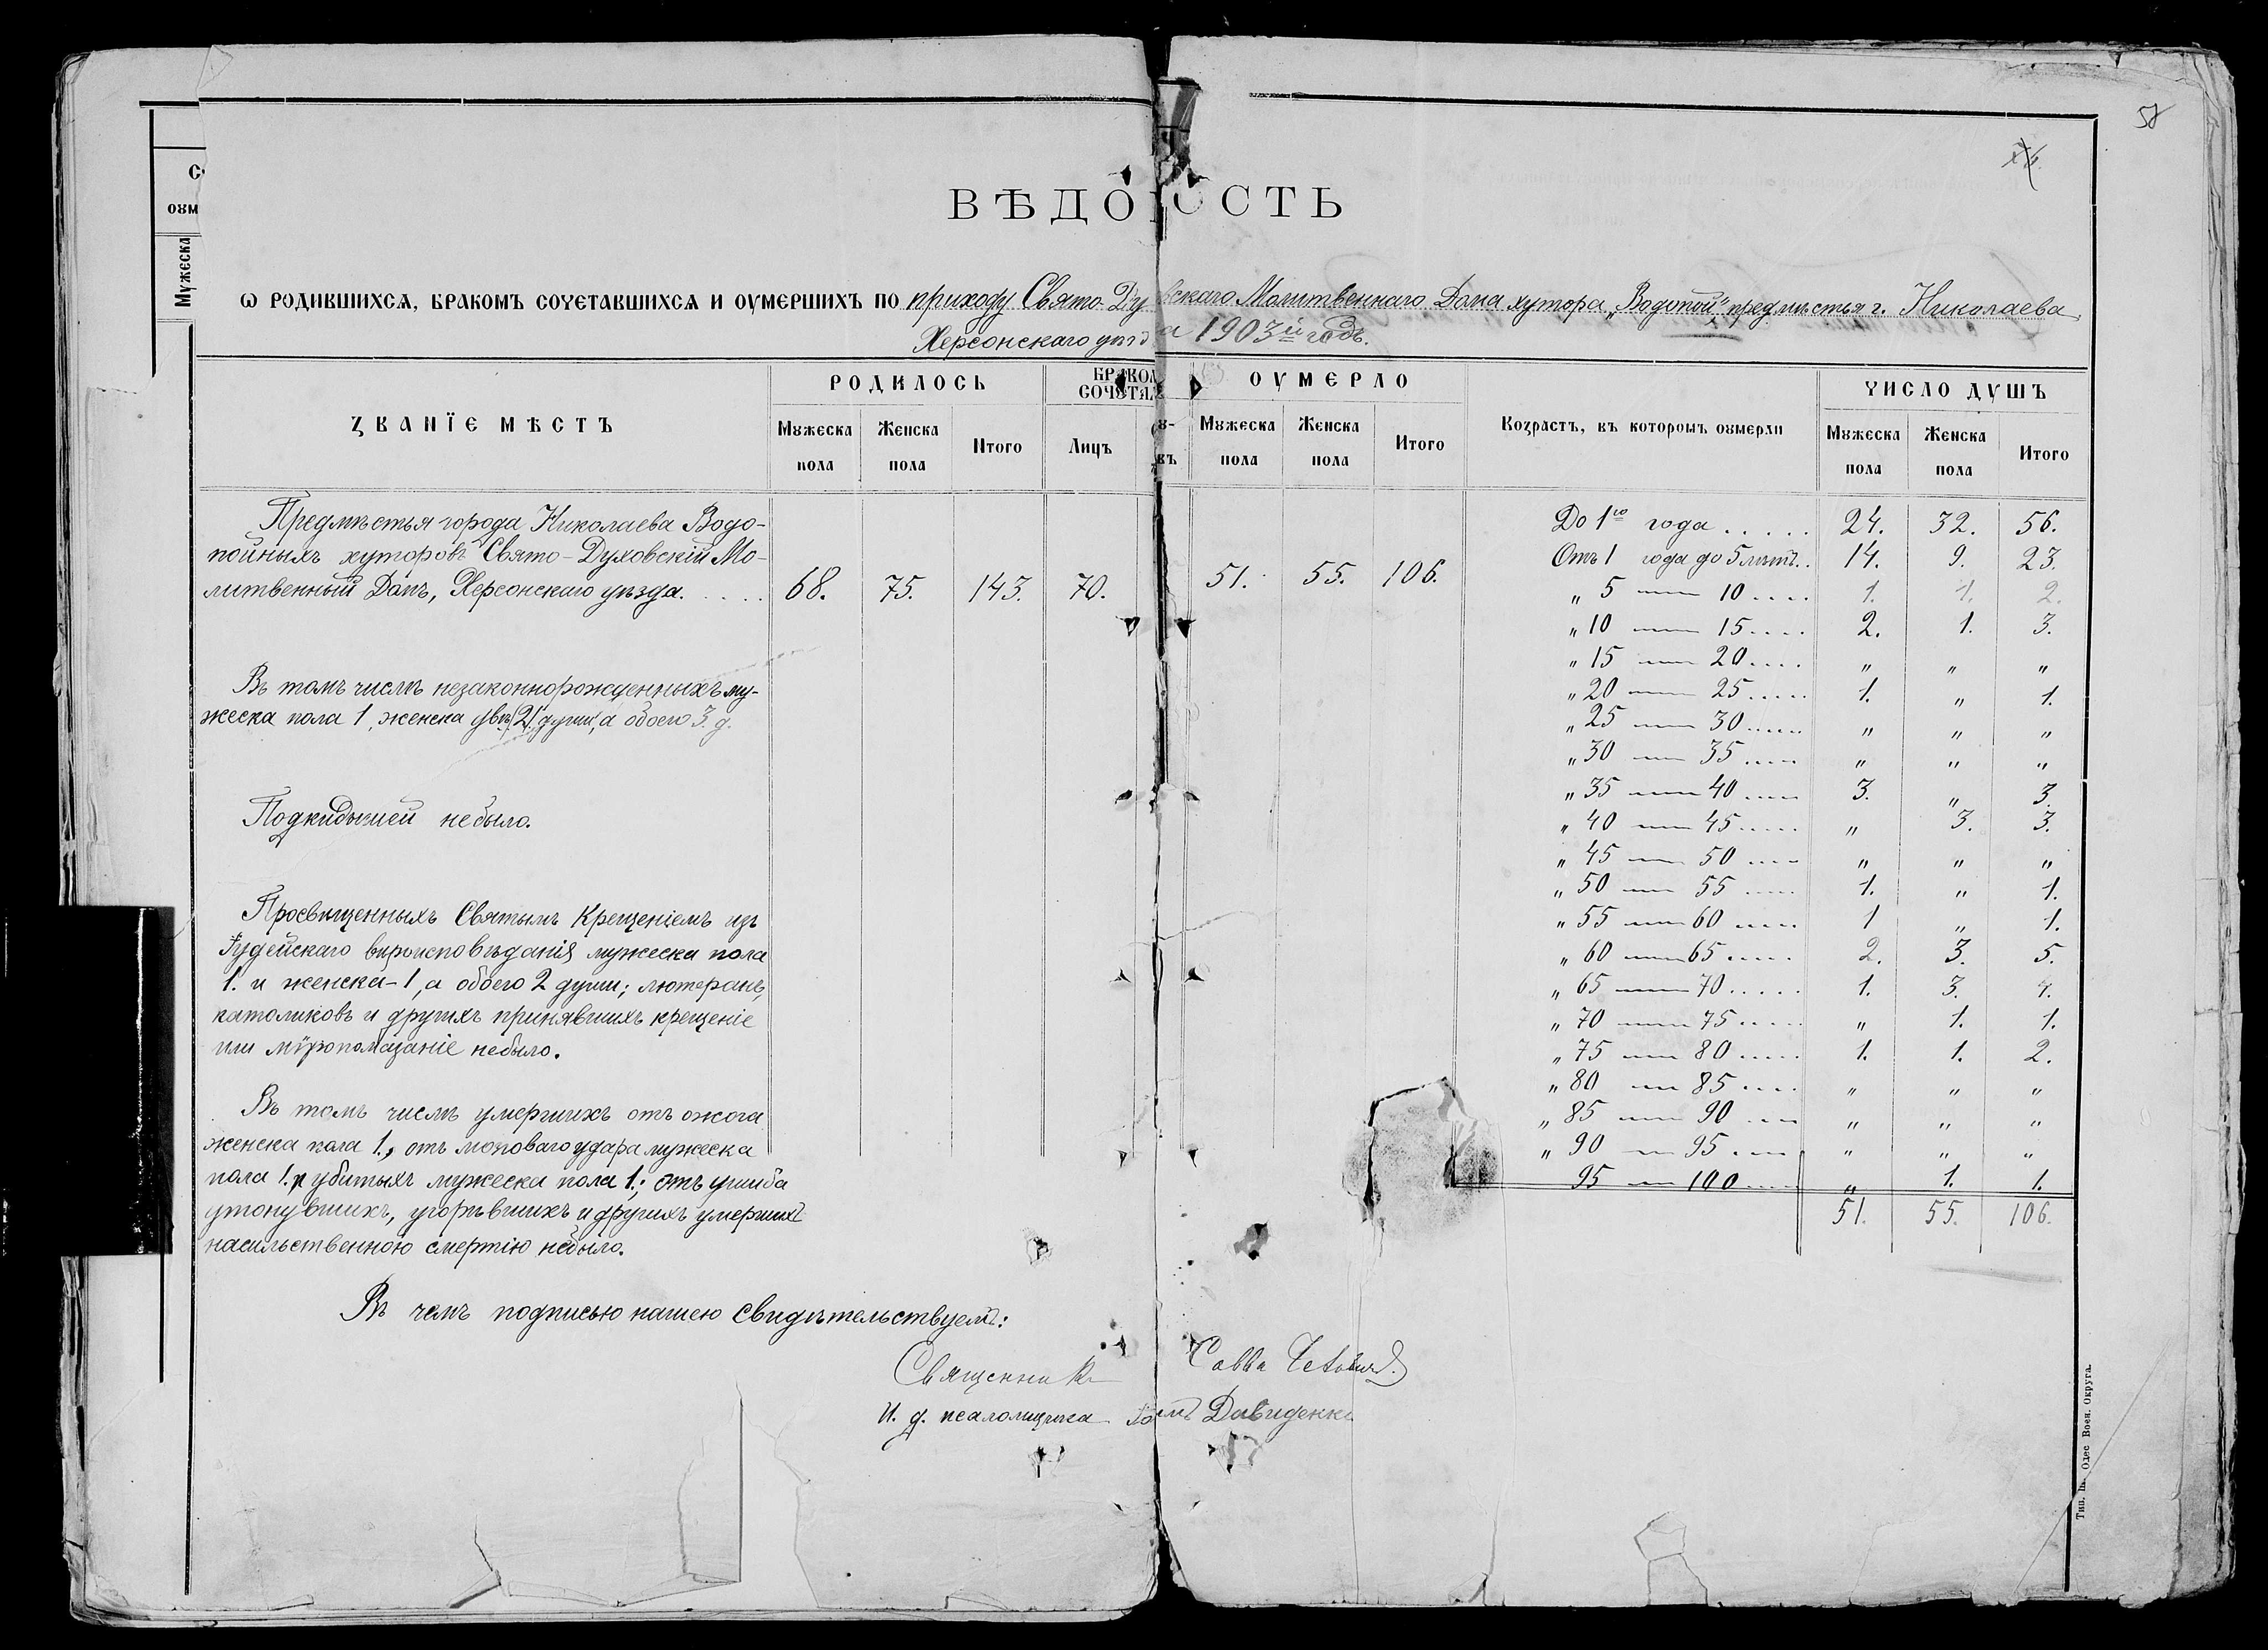 58
ВѢДОМОСТЬ
Ѡ РОДИВШИХСѦ, БРАКОМЪ СОЧЕТАВШИХСѦ И ОУМЕРШИХЪ ПО приходу Свято-Духовскаго Молитвеннаго Дома хутора „Водопой", предмѣстья г. Николаева,
Херсонскаго уѣзда 1903й годъ.
С
оум
Мужеска
ЗВАНЇЕ МѢСТЪ
РОДИЛОСЬ
Мужеска пола
Женска пола
Итого
БРАКОМ СОЧЕТАЛ
Лицъ
ОУМЕРЛО
Мужеска пола
Женска пола
Итого
Возрастъ, въ которомъ оумерли
ЧИСЛО ДУШЪ
Мужеска пола
Женска пола
Итого
Предмѣстья города Николаева Водо-
пойныхъ хуторовъ Свято-Духовскій Мо-
литвенный Домъ, Херсонскаго уѣзда. . . . . 68. 75. 143. 70. 51. 55. 106.
Въ томъ числѣ незаконнорожденныхъ му-
жеска пола 1, женска двѣ (2) души, а обоего 3. д.
Подкидышей небыло.
Просвѣщенныхъ Святымъ Крещеніемъ изъ
Іудейскаго вѣроисповѣданія мужеска пола
1. и женска-1, а обоего 2 души; лютеранъ,
католиковъ и другихъ принявшихъ крещеніе
или мѵропомазаніе небыло.
Въ томъ числѣ умершихъ отъ ожога
женска пола 1., отъ мозговаго удара мужеска
пола 1. и убитыхъ мужеска пола 1.; отъ ушиба
утонувшихъ, угорѣвшихъ и другихъ умершихъ
насильственною смертію небыло.
До 1го года . . . . . 24. 32. 56.
Отъ 1 года до 5 лѣтъ. . 14. 9. 23.
„ 5 — 10 . . . . 1. 1. 2.
„ 10 — 15 . . . . 2. 1. 3.
„ 15 — 20 . . . . „ „ „
„ 20 — 25 . . . . . 1. „ 1.
„ 25 — 30 . . . . . „ „ „
„ 30 — 35 . . . . „ „ „
„ 35 — 40 . . . . 3. „ 3.
„ 40 — 45 . . . . . „ 3. 3.
„ 45 — 50 . . . . „ „ „
„ 50 — 55 . . . . . 1. „ 1.
„ 55 — 60 . . . . 1 „ 1.
„ 60 — 65 . . . . . 2. 3. 5.
„ 65 — 70 . . . . . 1. 3. 4.
„ 70 — 75 . . . . . „ 1. 1.
„ 75 — 80 . . . . . 1. 1. 2.
„ 80 — 85 . . . . „ „ „
„ 85 — 90 . . . „ „ „
„ 90 — 95 . . . . „ „ „
95 — 100 . . . . „ 1. 1.
51. 55. 106.
Въ чемъ подписью нашею свидѣтельствуемъ:
Священникъ Савва
И. д. псаломщика Давиденко
Тип. Ш. Одес Воен. Округа.